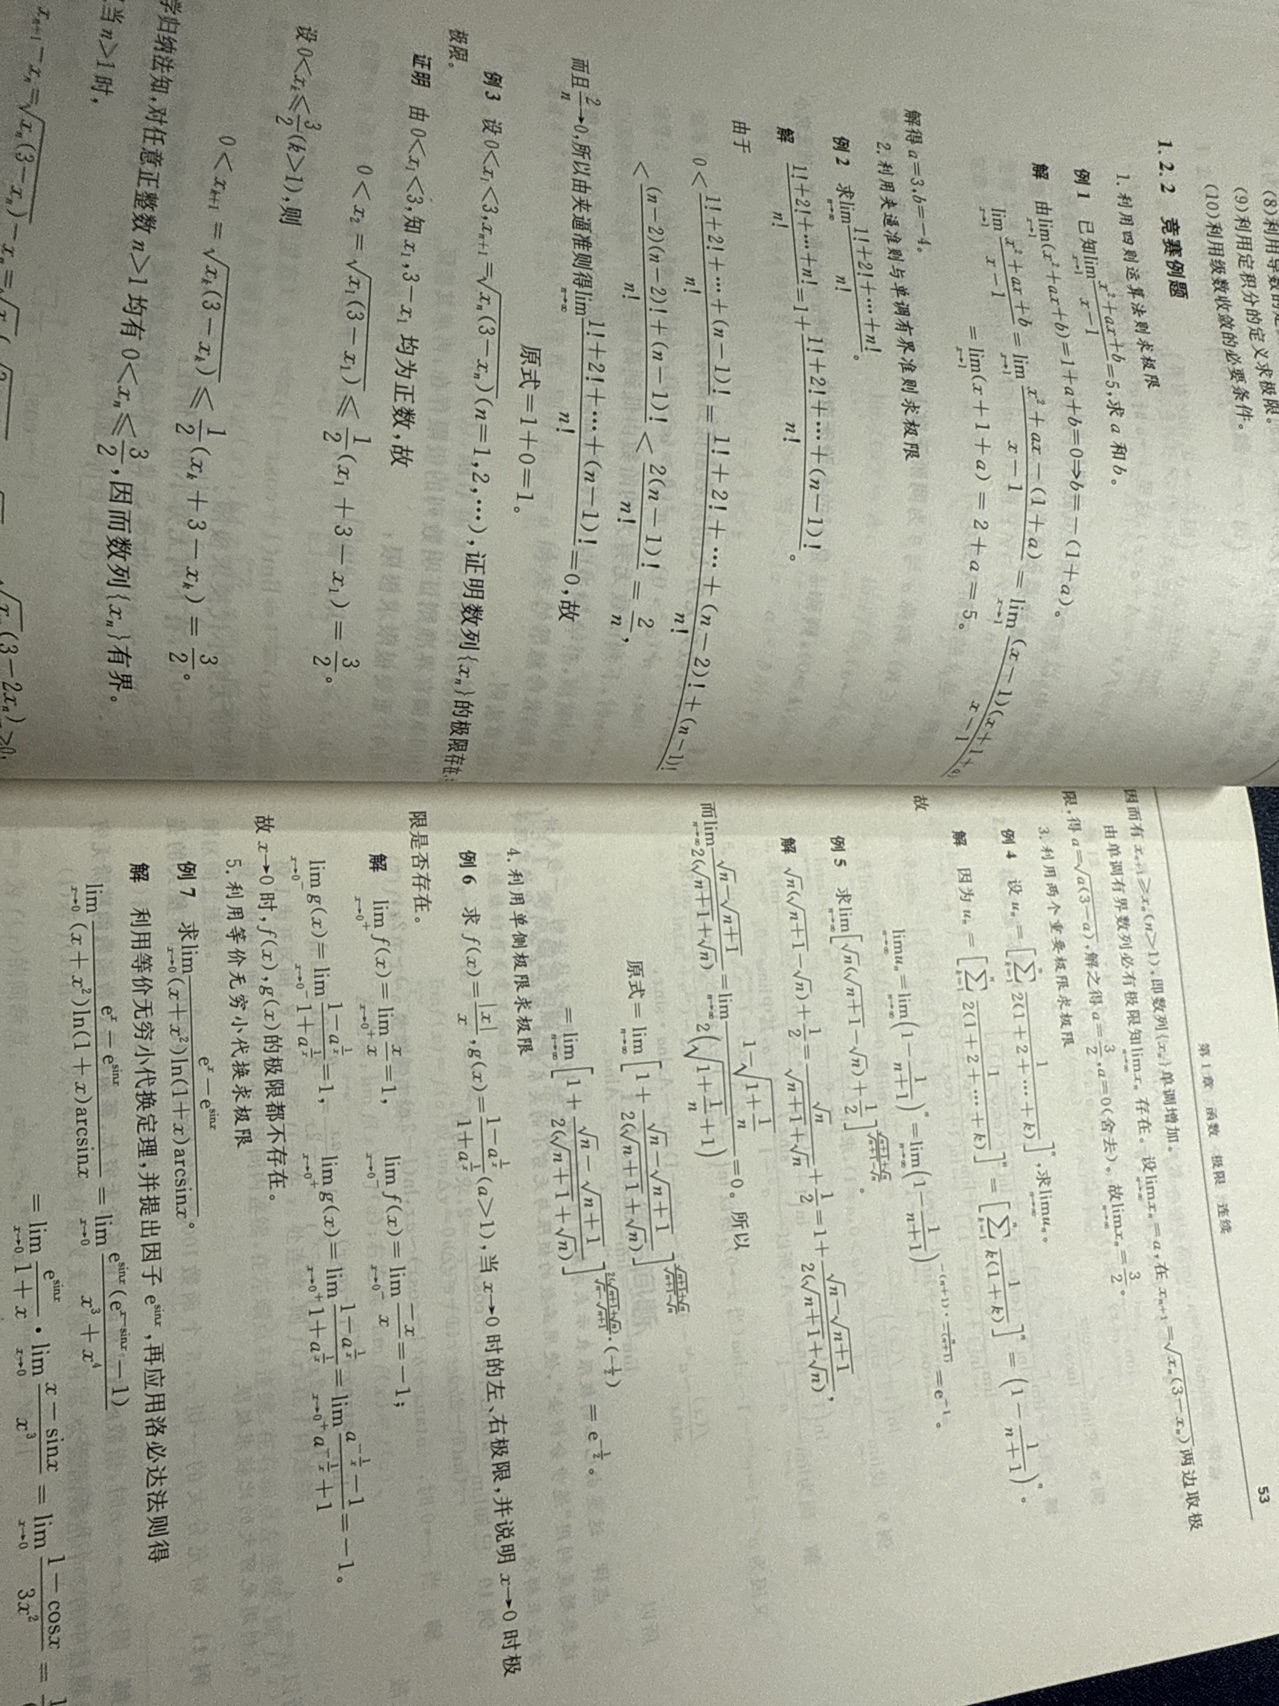 (9)利用定积分的定义求极限。
(10)利用级数收敛的必要条件。
1.2.2 竞赛例题
1. 利用四则运算法则求极限
例1 已知lim_{x→1} (x²+ax+b)/(x−1)=5,求 a 和 b。
解 由lim_{x→1}(x²+ax+b)=1+a+b=0⇒b=−(1+a)。
lim_{x→1} (x²+ax+b)/(x−1) = lim_{x→1} (x²+ax−(1+a))/(x−1) = lim_{x→1} (x−1)(x+1+a)/(x−1)
= lim_{x→1}(x+1+a) = 2+a = 5。
解得 a=3,b=−4。
2. 利用夹逼准则与单调有界准则求极限
例2 求lim_{n→∞} (1!+2!+⋯+n!)/n!。
解 (1!+2!+⋯+n!)/n! = 1 + (1!+2!+⋯+(n−1)!)/n!。
由于
0 < (1!+2!+⋯+(n−1)!)/n! = (1!+2!+⋯+(n−2)!+(n−1)!)/n!
< ((n−2)(n−2)!+(n−1)!)/n! < 2(n−1)!/n! = 2/n,
而且 2/n→0,所以由夹逼准则得lim_{n→∞} (1!+2!+⋯+(n−1)!)/n! = 0,故
原式=1+0=1。
例3 设 0<x₁<3,x_{n+1}=√(x_n(3−x_n)) (n=1,2,⋯),证明数列{x_n}的极限存在,
极限。
证明 由 0<x₁<3,知 x₁,3−x₁ 均为正数,故
0 < x₂ = √(x₁(3−x₁)) ⩽ 1/2 (x₁+3−x₁) = 3/2。
设 0<x_k⩽3/2 (k>1),则
0 < x_{k+1} = √(x_k(3−x_k)) ⩽ 1/2 (x_k+3−x_k) = 3/2。
学归纳法知,对任意正整数 n>1 均有 0<x_n⩽3/2,因而数列{x_n}有界。
当 n>1 时,
x_{n+1}−x_n=√(x_n(3−x_n))−x_n=
第1章 函数 极限 连续 53
因而有 x_{n+1}⩾x_n(n>1),即数列{x_n}单调增加。
由单调有界数列必有极限知lim_{n→∞} x_n 存在。设lim_{n→∞} x_n=a,在 x_{n+1}=√(x_n(3−x_n))两边取极
限,得 a=√(a(3−a)),解之得 a=3/2,a=0(舍去)。故lim_{n→∞} x_n=3/2。
3. 利用两个重要极限求极限
例4 设 u_n=[∑_{k=1}^{n} 1/(2(1+2+⋯+k))]^n,求lim_{n→∞} u_n。
解 因为 u_n=[∑_{k=1}^{n} 1/(2(1+2+⋯+k))]^n=[∑_{k=1}^{n} 1/(k(1+k))]^n=(1−1/(n+1))^n。
故
lim_{n→∞} u_n=lim_{n→∞}(1−1/(n+1))^n=lim_{n→∞}(1−1/(n+1))^{−(n+1)·n/(−(n+1))}=e^{−1}。
例5 求lim_{n→∞}[√n(√(n+1)−√n)+1/2]^{(√(n+1)+√n)/(√(n+1)−√n)}。
解 √n(√(n+1)−√n)+1/2=√n/(√(n+1)+√n)+1/2=1+(√n−√(n+1))/(2(√(n+1)+√n)),
而lim_{n→∞} (√n−√(n+1))/(2(√(n+1)+√n))=lim_{n→∞} (1−√(1+1/n))/(2(√(1+1/n)+1))=0。所以
原式=lim_{n→∞}[1+(√n−√(n+1))/(2(√(n+1)+√n))]^{(√(n+1)+√n)/(√(n+1)−√n)}
=lim_{n→∞}[1+(√n−√(n+1))/(2(√(n+1)+√n))]^{2(√(n+1)+√n)/(√n−√(n+1))·(−1/2)}=e^{−1/2}。
4. 利用单侧极限求极限
例6 求 f(x)=|x|/x,g(x)=(1−a^{1/x})/(1+a^{1/x})(a>1),当 x→0 时的左、右极限,并说明 x→0 时极
限是否存在。
解 lim_{x→0⁺} f(x)=lim_{x→0⁺} x/x=1, lim_{x→0⁻} f(x)=lim_{x→0⁻} −x/x=−1;
lim_{x→0⁻} g(x)=lim_{x→0⁻} (1−a^{1/x})/(1+a^{1/x})=1, lim_{x→0⁺} g(x)=lim_{x→0⁺} (1−a^{1/x})/(1+a^{1/x})=lim_{x→0⁺} (a^{−1/x}−1)/(a^{−1/x}+1)=−1。
故 x→0 时,f(x),g(x)的极限都不存在。
5. 利用等价无穷小代换求极限
例7 求lim_{x→0} (e^x−e^{sinx})/((x+x²)ln(1+x)arcsinx)。
解 利用等价无穷小代换定理,并提出因子 e^{sinx},再应用洛必达法则得
lim_{x→0} (e^x−e^{sinx})/((x+x²)ln(1+x)arcsinx)=lim_{x→0} e^{sinx}(e^{x−sinx}−1)/(x³+x⁴)
=lim_{x→0} e^{sinx}/(1+x)·lim_{x→0} (x−sinx)/x³=lim_{x→0} (1−cosx)/3x²=